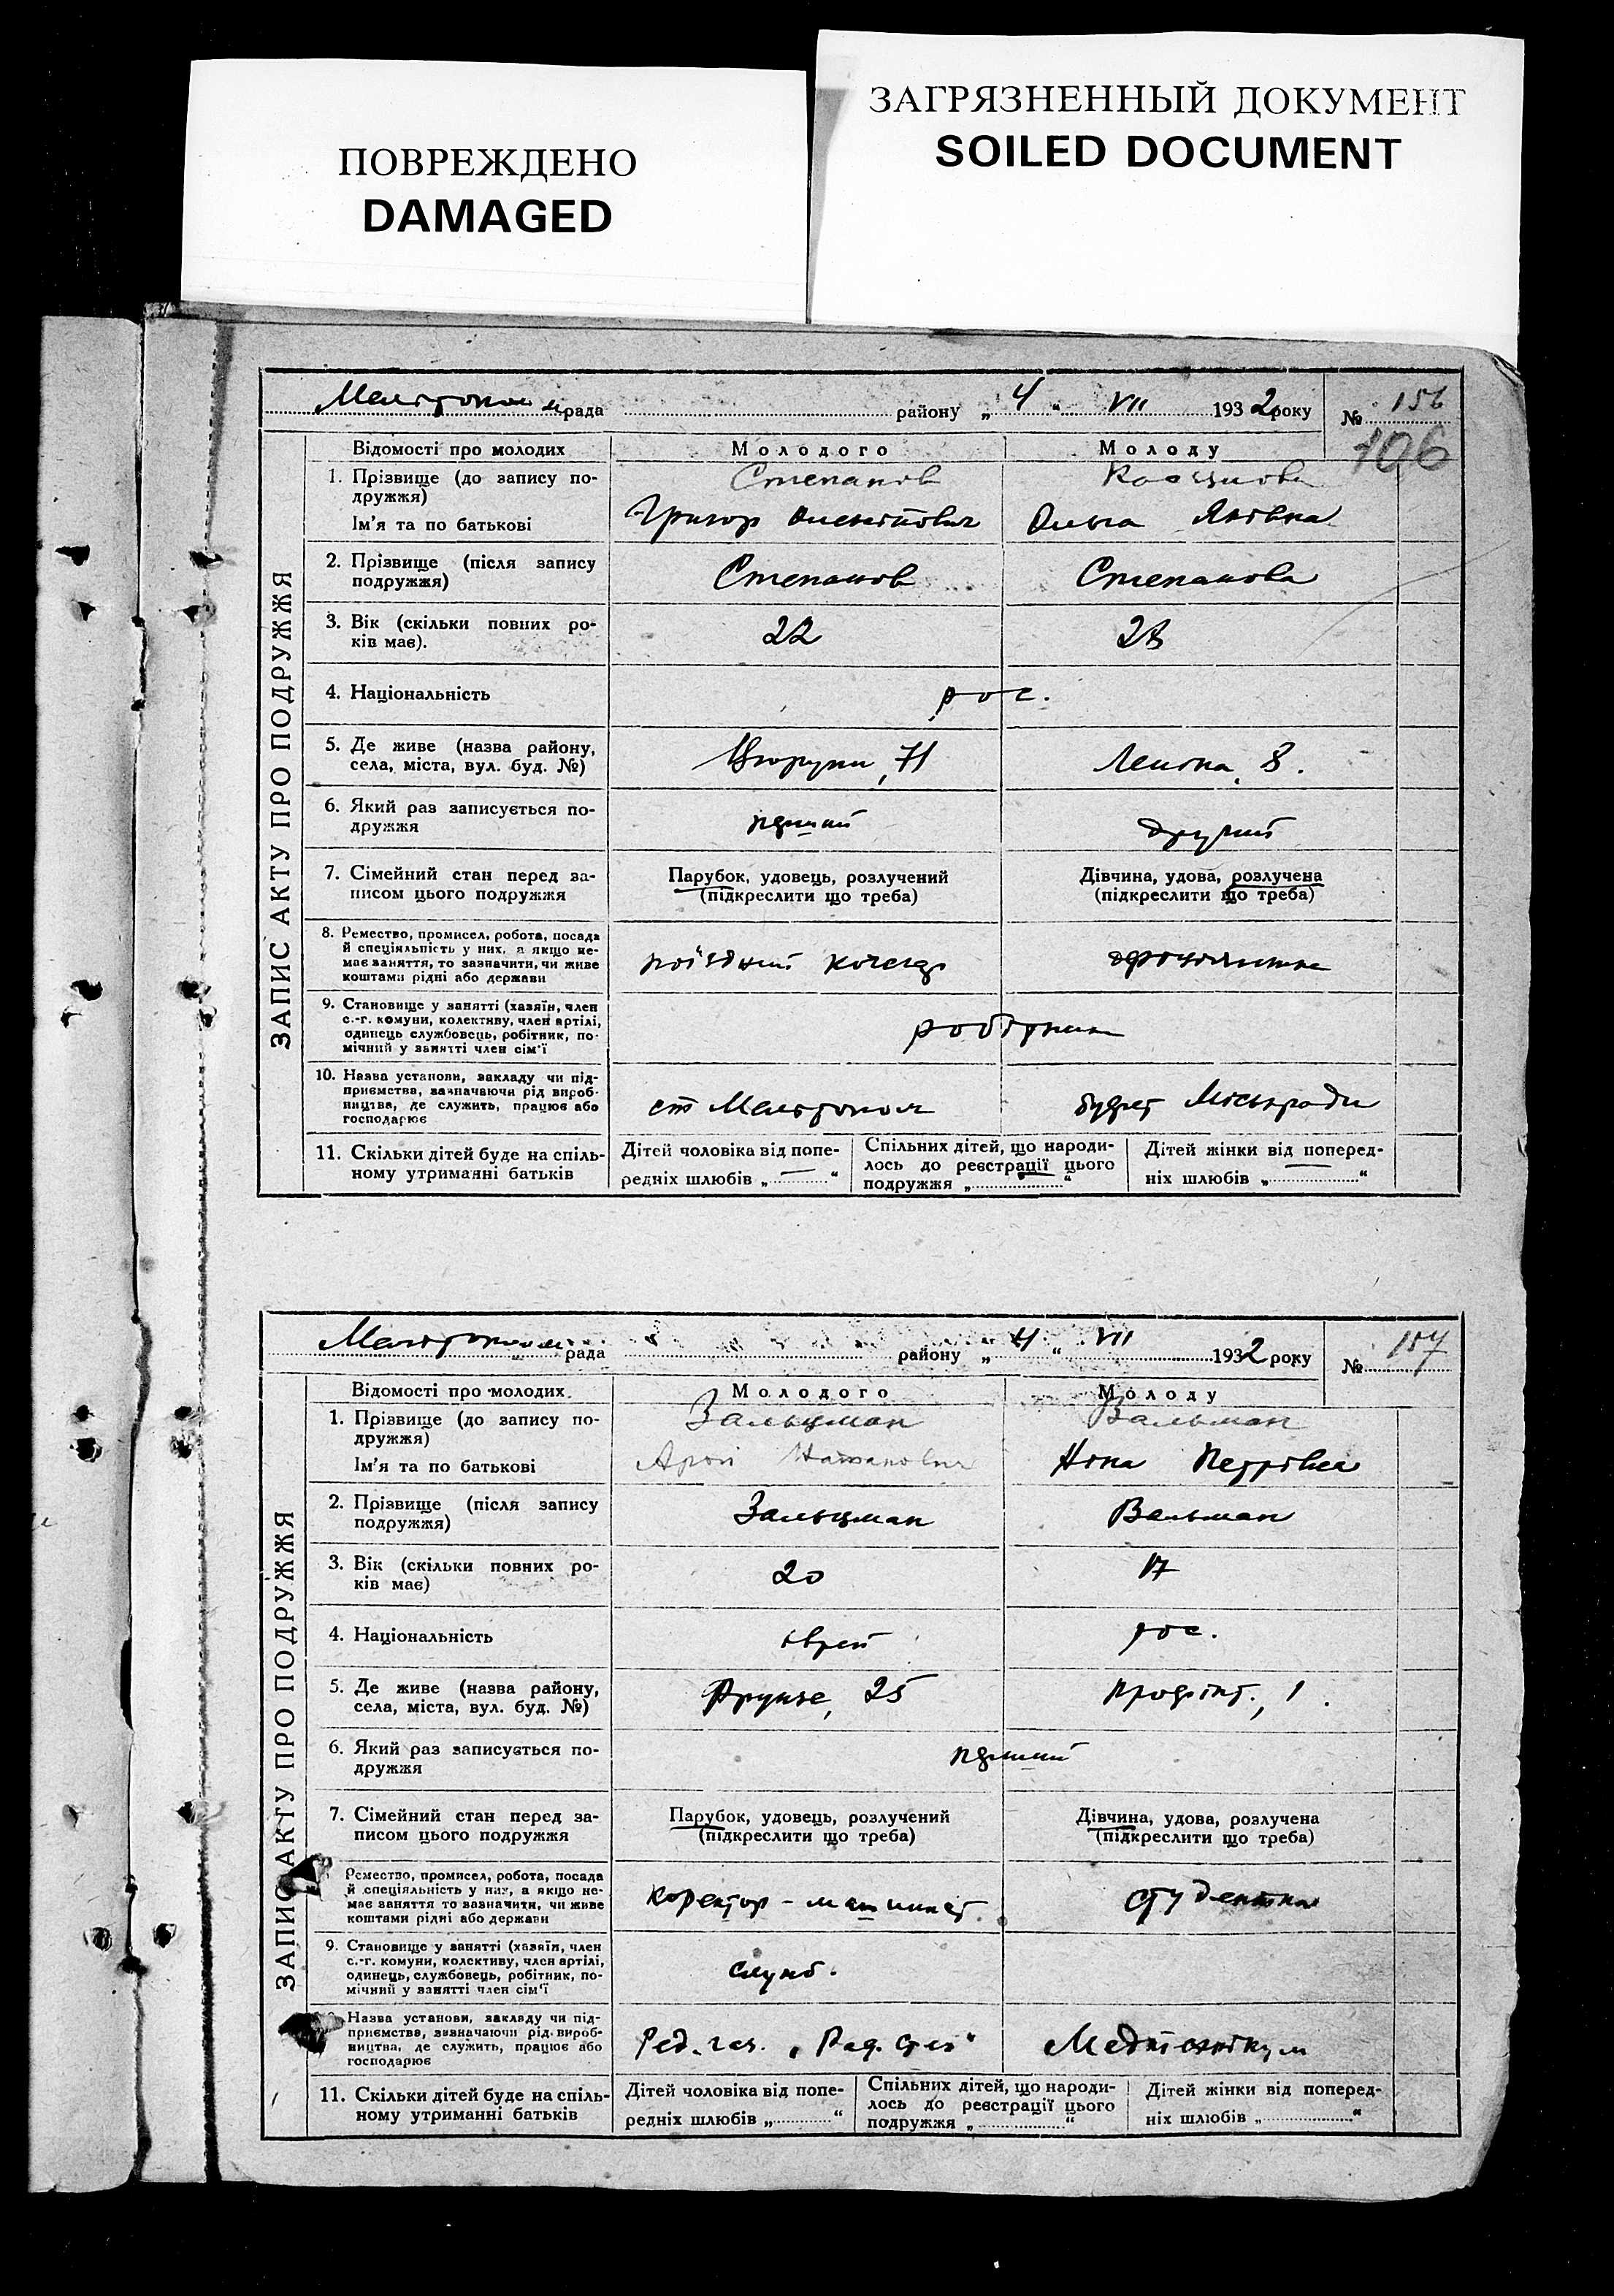 ПОВРЕЖДЕНО
DAMAGED
ЗАГРЯЗНЕННЫЙ ДОКУМЕНТ
SOILED DOCUMENT
рада району „ 4 “ VII 1932 року № 156
106
ЗАПИС АКТУ ПРО ПОДРУЖЖЯ
Відомості про молодих Молодого Молоду
1. Прізвище (до запису по- Степанов
дружжя)
Ім'я та по батькові Григор Ольга Яківна
2. Прізвище (після запису Степанов Степанова
подружжя)
3. Вік (скільки повних ро- 22 28
ків має).
4. Національність рос.
5. Де живе (назва району, Цюрупи, 71 Леніна, 8.
села, міста, вул. буд. №)
6. Який раз записується по- перший другий
дружжя
7. Сімейний стан перед за- Парубок, удовець, розлучений Дівчина, удова, розлучена
писом цього подружжя (підкреслити що треба) (підкреслити що треба)
8. Ремество, промисел, робота, посада
й спеціяльність у них, а якщо не-
має заняття, то зазначити, чи живе поїздний кочегар
коштами рідні або держави
9. Становище у занятті (хазяїн, член
с.-г. комуни, колективу, член артілі,
одинець службовець, робітник, по- робітники
мічний у занятті член сім'ї
10. Назва установи, закладу чи під-
приємства, зазначаючи рід вироб-
ництва, де служить, працює або ст Мелітополь Міськради
господарює
11. Скільки дітей буде на спіль- Дітей чоловіка від попе- Спільних дітей, що народи- Дітей жінки від поперед-
ному утриманні батьків редніх шлюбів „ — “ лось до реєстрації цього ніх шлюбів „ — “
подружжя „ — “
рада району „ 4 “ VII 1932 року № 157
ЗАПИС АКТУ ПРО ПОДРУЖЖЯ
Відомості про молодих. Молодого Молоду
1. Прізвище (до запису по- Зальцман Вальман
дружжя)
Ім'я та по батькові Арон Натанович Ніна Петрівна
2. Прізвище (після запису Зальцман Вальман
подружжя)
3. Вік (скільки повних ро- 20 17
ків має)
4. Національність єврей рос.
5. Де живе (назва району, Фрунзе, 25 Профінт., 1.
села, міста, вул. буд. №)
6. Який раз записується по- перший
дружжя
7. Сімейний стан перед за- Парубок, удовець, розлучений Дівчина, удова, розлучена
писом цього подружжя (підкреслити що треба) (підкреслити що треба)
Ремество, промисел, робота, посада
й спеціяльність у них, а якщо не- коректор - машиніст студентка
має заняття то зазначити, чи живе
коштами рідні або держави
9. Становище у занятті (хазяїн, член
с.-г. комуни, колективу, член артілі, служб.
одинець, службовець, робітник, по-
мічний у занятті член сім'ї
Назва установи, закладу чи під-
приємства, зазначаючи рід вироб-
ництва, де служить, працює або Ред. газ. „Рад. степ“ Медтехнікум
господарює
11. Скільки дітей буде на спіль- Дітей чоловіка від попе- Спільних дітей, що народи- Дітей жінки від поперед-
ному утриманні батьків редніх шлюбів „ “ лось до реєстрації цього ніх шлюбів „ “
подружжя „ “